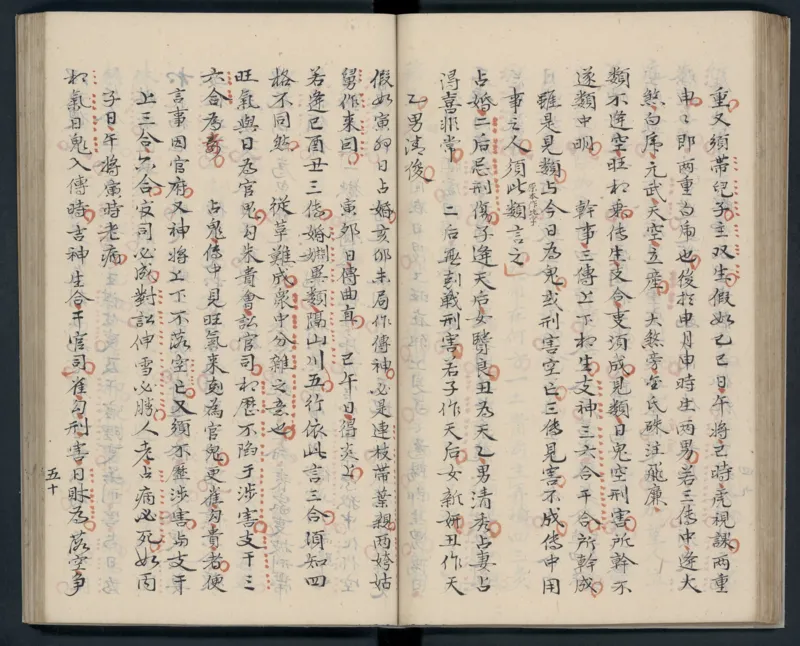 重又須帶兒子主双生假如己巳日午將巳時虎視課兩重
申〻即兩重白虎也後於申月申時生兩男若三傳中逢大
煞白虎元武天空立產 大煞旁空氏硃注飛廉
類不逢空旺相乘傳生支合吏須成見類日鬼空刑害所幹不
遂類中明 幹事三傳上下相生支神三六合干合所幹成
雖是見類占今日為鬼或刑害空亡三傳見害不成傳中用
事之人須此類言之
占婚二后忌刑傷子逢天后女賢良丑為天乙男清秀占妻占
得喜非常 二后無剋戰刑害若子作天后女新妍丑作天
乙男清俊
假如寅卯日占婚亥卯未局作傳神必是連枝帶葉親兩姱姑
舅作來回 寅卯日傳曲直 巳午日得炎上
若逢巳酉丑三傳婚姻異類隔山川五行依此言三合須知四
格不同然 從革難成稟中分雜之意也
旺氣與日為官鬼勾朱貴會訟官司相歷不陷于涉害支干三
六合為 占鬼傳中見旺氣來剋為官鬼更雀勾貴者便
言事因官府又神將上下不落空亡又須不歷涉害与支干
上三合六合官司必成對訟伸雪必勝人老占病必死如丙
子日午將寅時老病
相氣日鬼入傳時吉神生合干官司雀勾刑害日財為落空爭
五十